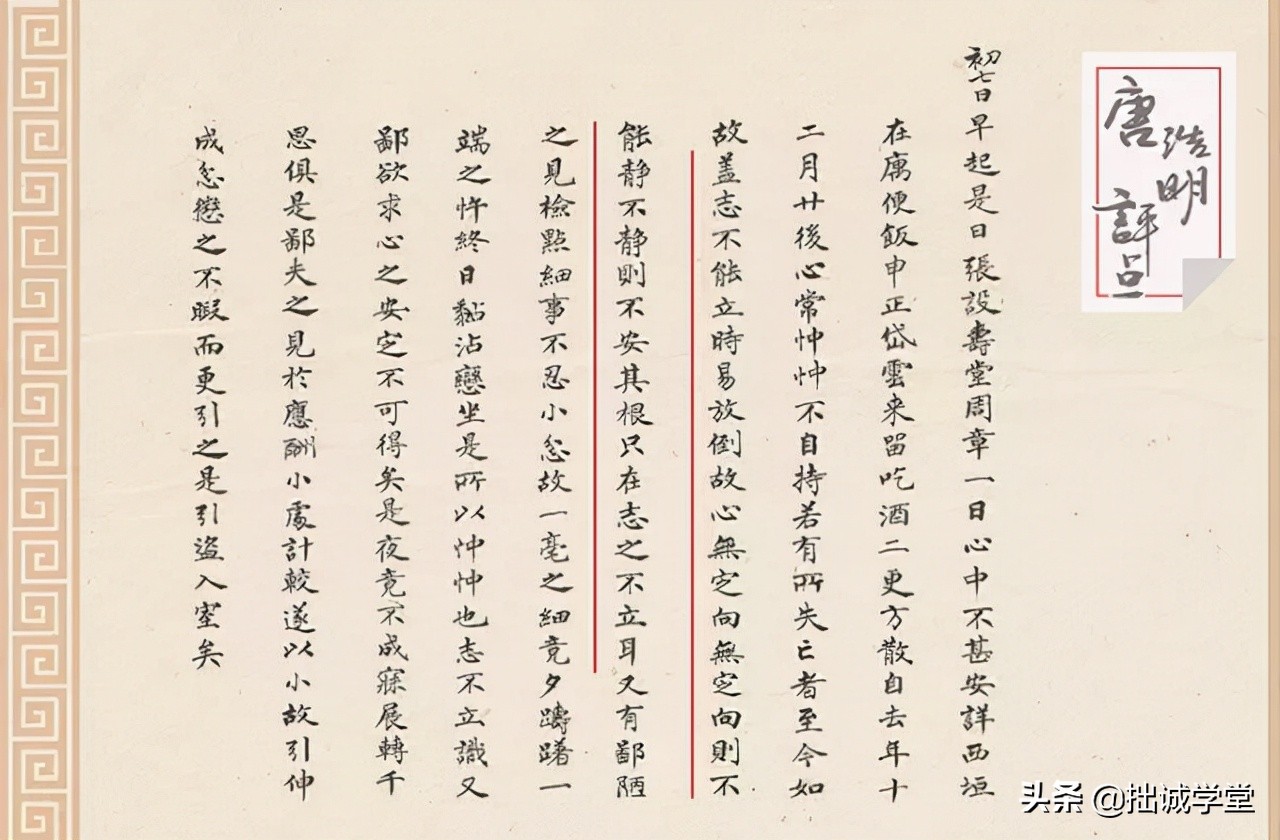 唐浩明
評点
初七日早起是日張設壽堂周章一日心中不甚安詳西垣
在寓便飯申正岱雲来留吃酒二更方散自去年十
二月廿後心常忡忡不自持若有所失亡者至今如
故盖志不能立時易放倒故心無定向無定向則不
能静不静則不安其根只在志之不立耳又有鄙陋
之見檢點細事不忍小忿故一毫之細竟夕躊躇一
端之忤終日黏沾戀坐是所以忡忡也志不立識又
鄙欲求心之安定不可得矣是夜竟不成寐展轉千
思俱是鄙夫之見於應酬小處計較遂以小故引伸
成忿懲之不暇而更引之是引盜入室矣
头条 @拙诚学堂